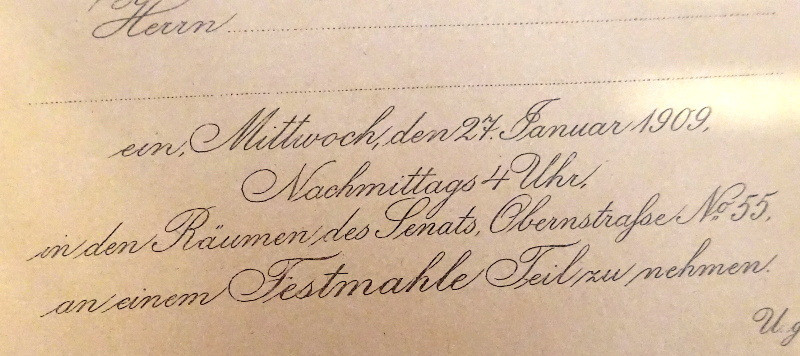 Herrn
ein, Mittwoch, den 27. Januar 1909,
Nachmittags 4 Uhr,
in den Räumen des Senats, Obernstraſse No. 55,
an einem Festmahle Teil zu nehmen.
U.